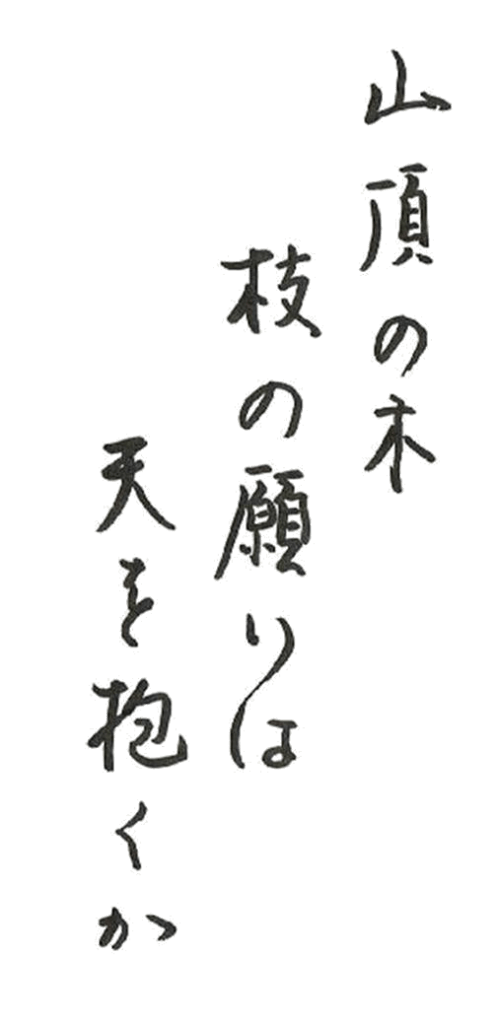 山頂の木
枝の願りは
天を抱くか